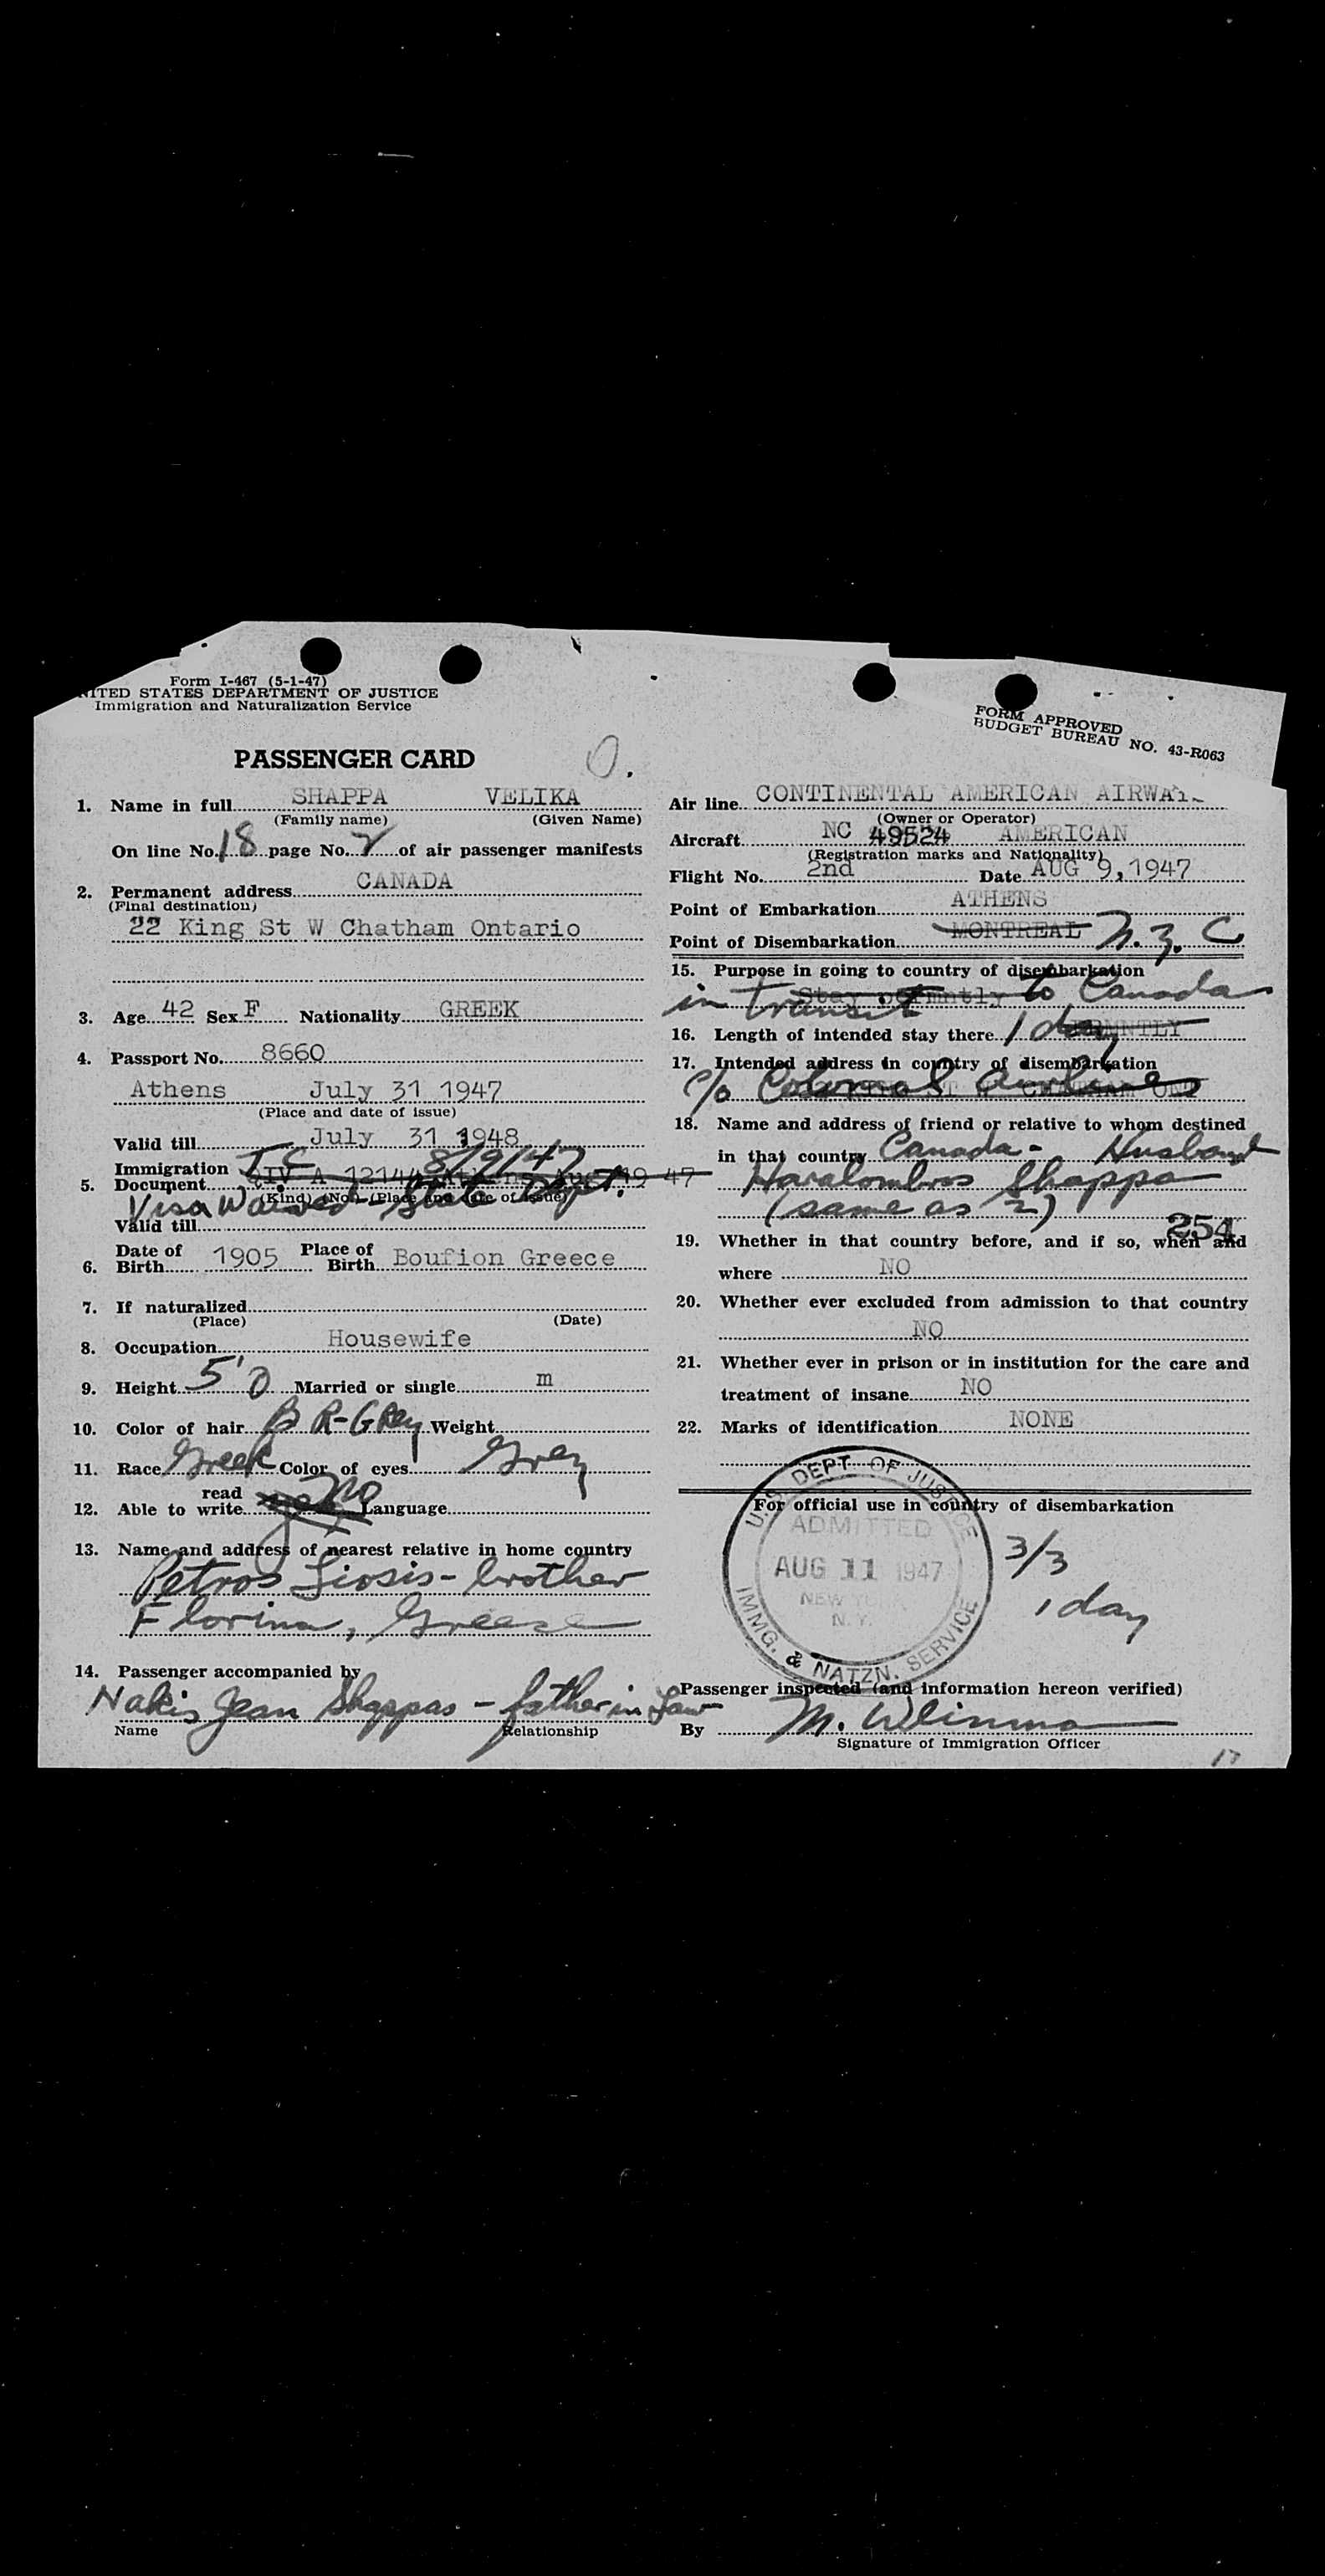 Form I-467 (5-1-47)
UNITED STATES DEPARTMENT OF JUSTICE
Immigration and Naturalization Service
PASSENGER CARD
0.
1. Name in full SHAPPA VELIKA
(Family name) (Given Name)
On line No. 18 page No. 2 of air passenger manifests
2. Permanent address CANADA
(Final destination)
22 King St W Chatham Ontario
3. Age 42 Sex F Nationality GREEK
4. Passport No. 8660
Athens July 31 1947
(Place and date of issue)
Valid till July 31 1948
Immigration
5. Document 8/9/47
(Kind) (No.) (Place and date of issue)
Visa Waived - State Dept.
Valid till
6. Date of Birth 1905 Place of Birth Boufion Greece
7. If naturalized
(Place) (Date)
8. Occupation Housewife
9. Height 5' 0 Married or single m
10. Color of hair BR-GRey Weight
11. Race Greek Color of eyes Grey
read
12. Able to write no Language
13. Name and address of nearest relative in home country
Petros Liosis - brother
Florina, Greece
14. Passenger accompanied by
Nakis Jean Shappas - father in Law
Name Relationship
FORM APPROVED
BUDGET BUREAU NO. 43-R063
Air line CONTINENTAL AMERICAN AIRWAY
(Owner or Operator)
Aircraft NC 49524 AMERICAN
(Registration marks and Nationality)
Flight No. 2nd Date AUG 9, 1947
Point of Embarkation ATHENS
Point of Disembarkation MONTREAL
15. Purpose in going to country of disembarkation
in transit to Canada
16. Length of intended stay there 1 day
17. Intended address in country of disembarkation
c/o Colonial Airlines
18. Name and address of friend or relative to whom destined
in that country Canada - Husband
Haralombros Shappa
(same as 2)
254
19. Whether in that country before, and if so, when and
where NO
20. Whether ever excluded from admission to that country
NO
21. Whether ever in prison or in institution for the care and
treatment of insane NO
22. Marks of identification NONE
For official use in country of disembarkation
U.S. DEPT. OF JUSTICE
ADMITTED
AUG 11 1947
NEW YORK
N.Y.
IMMG. & NATZN. SERVICE
3/3
1 day
Passenger inspected (and information hereon verified)
By M.
Signature of Immigration Officer
17